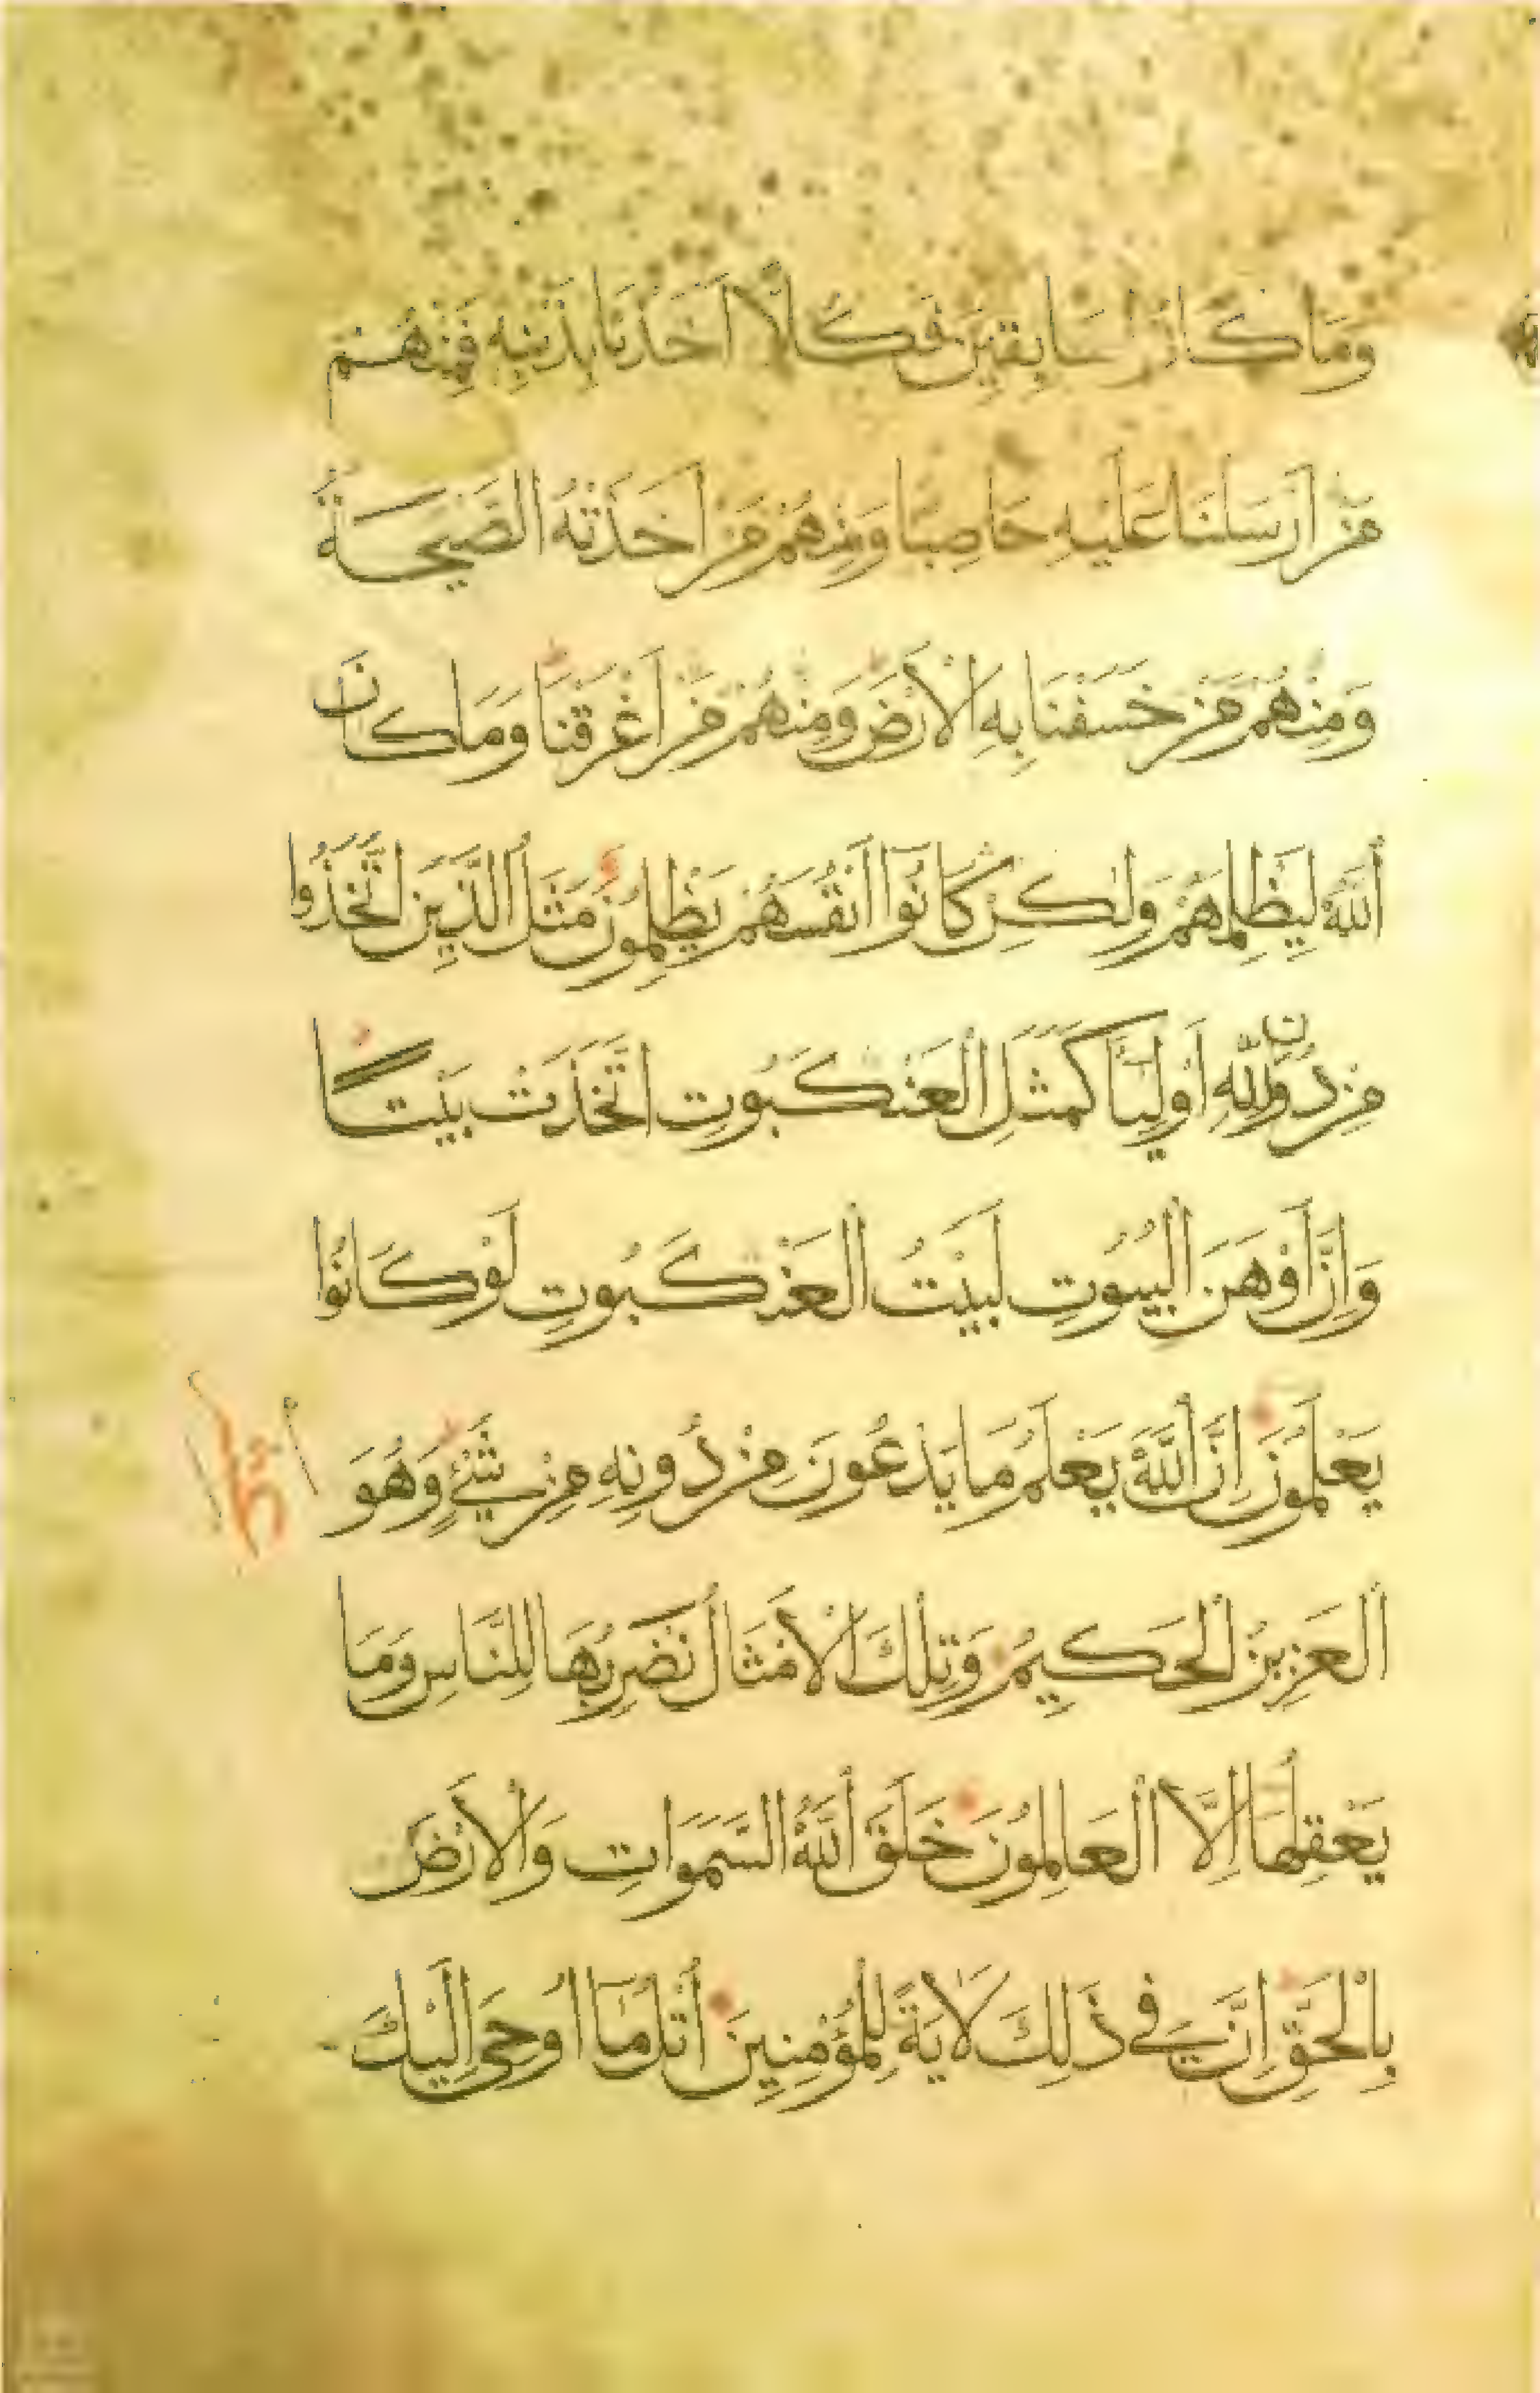 وَمَا كَانُوا سَابِقِينَ فَكُلًّا أَخَذْنَا بِذَنْبِهِ فَمِنْهُمْ
مَنْ أَرْسَلْنَا عَلَيْهِ حَاصِبًا وَمِنْهُمْ مَنْ أَخَذَتْهُ الصَّيْحَةُ
وَمِنْهُمْ مَنْ خَسَفْنَا بِهِ الْأَرْضَ وَمِنْهُمْ مَنْ أَغْرَقْنَا وَمَا كَانَ
اللَّهُ لِيَظْلِمَهُمْ وَلٰكِنْ كَانُوا أَنْفُسَهُمْ يَظْلِمُونَ مَثَلُ الَّذِينَ اتَّخَذُوا
مِنْ دُونِ اللَّهِ أَوْلِيَاءَ كَمَثَلِ الْعَنْكَبُوتِ اتَّخَذَتْ بَيْتًا
وَإِنَّ أَوْهَنَ الْبُيُوتِ لَبَيْتُ الْعَنْكَبُوتِ لَوْ كَانُوا
يَعْلَمُونَ إِنَّ اللَّهَ يَعْلَمُ مَا يَدْعُونَ مِنْ دُونِهِ مِنْ شَيْءٍ وَهُوَ
الْعَزِيزُ الْحَكِيمُ وَتِلْكَ الْأَمْثَالُ نَضْرِبُهَا لِلنَّاسِ وَمَا
يَعْقِلُهَا إِلَّا الْعَالِمُونَ خَلَقَ اللَّهُ السَّمَوَاتِ وَالْأَرْضَ
بِالْحَقِّ إِنَّ فِي ذَلِكَ لَآيَةً لِلْمُؤْمِنِينَ اُتْلُ مَا أُوحِيَ إِلَيْكَ